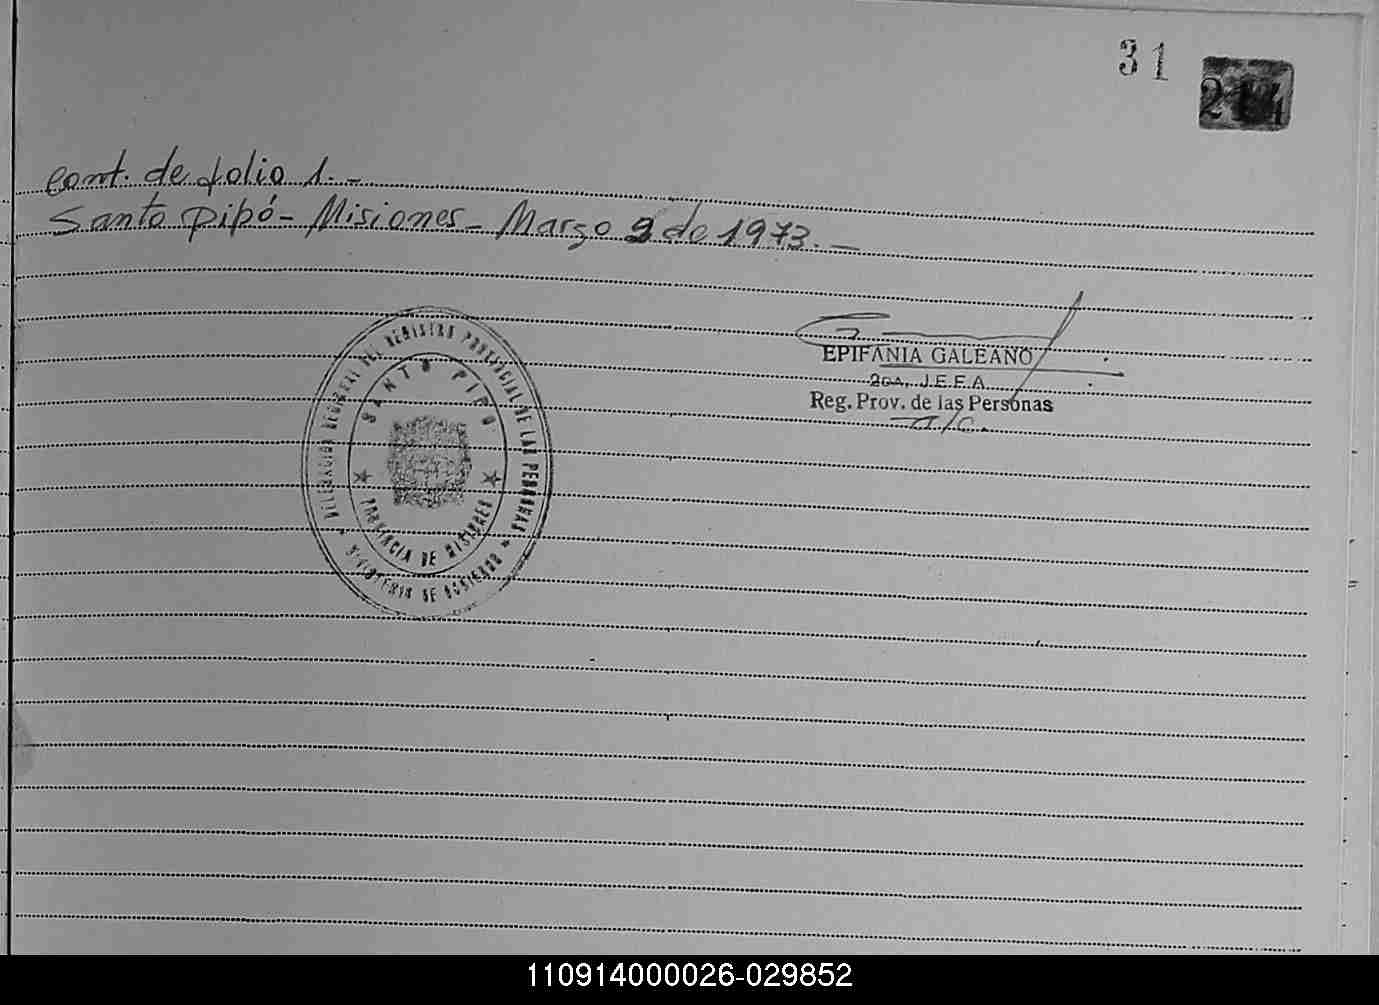 31
214
cont. de folio 1.-
Santo Pipó - Misiones - Marzo 9 de 1973.-
EPIFANIA GALEANO
2DA. J.E.E.A
Reg. Prov. de las Personas
a/c.
DELEGACION REGIONAL DEL REGISTRO PROVINCIAL DE LAS PERSONAS
SANTO PIPO
PROVINCIA DE MISIONES
MINISTERIO DE GOBIERNO
110914000026-029852